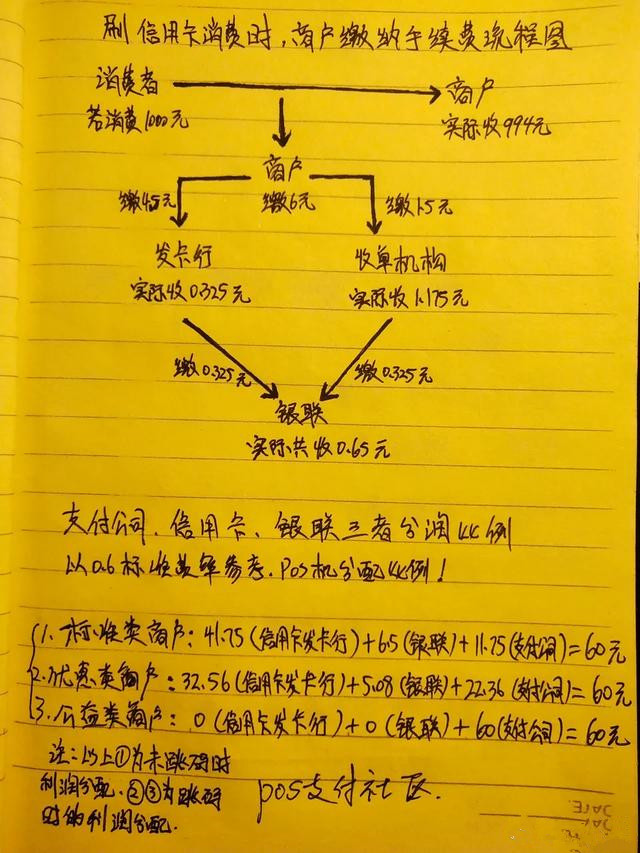 刷信用卡消费时,商户缴纳手续费流程图
消费者
商户
若消费1000元
实际收994元
商户
缴4.5元
缴6元
缴1.5元
发卡行
收单机构
实际收0.325元
实际收1.175元
缴0.325元
缴0.325元
银联
实际共收0.65元
支付公司、信用卡、银联三者分润比例
以0.6标准费率参考.POS机分配比例!
1.标准类商户:41.75(信用卡发卡行)+6.5(银联)+11.75(支付公司)=60元
2.优惠类商户:32.56(信用卡发卡行)+5.08(银联)+22.36(支付公司)=60元
3.公益类商户:0(信用卡发卡行)+0(银联)+60(支付公司)=60元
注:以上①为未跳码时
利润分配.②③为跳码
时的利润分配.
pos支付社区.
DATE